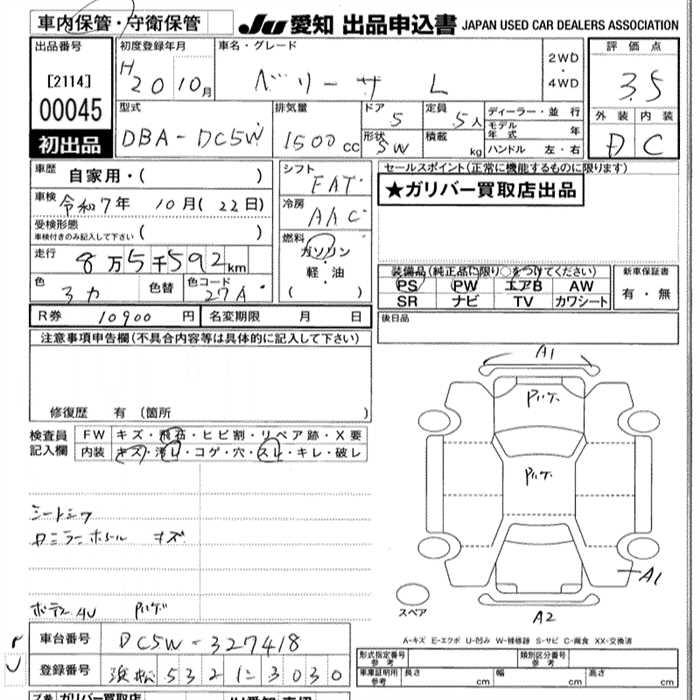 車内保管・守衛保管
JU 愛知 出品申込書 JAPAN USED CAR DEALERS ASSOCIATION
出品番号
[2114]
00045
初出品
初度登録年月
H20 10月
車名・グレード
ベリーサ L
2WD
・
4WD
評価点
3.5
外装 内装
D C
型式
DBA-DC5W
排気量
1500cc
ドア 5
形状 SW
定員 5人
積載 kg
ディーラー・並行
モデル年式 年
ハンドル 左・右
車歴 自家用・( )
車検 令和7年 10月(22日)
受検形態
車検付きのみ記入して下さい ( )
走行 8万5千592km
色 色替 色コード 27A
シフト FAT
冷房 AAC
燃料
ガソリン
・
軽・油
( )
セールスポイント(正常に機能するものに限ります)
★ガリバー買取店出品
装備品(純正品に限り○をつけてください)
PS PW エアB AW
SR ナビ TV カワシート
新車保証書
有・無
R券 10900 円 名変期限 月 日
後日品
注意事項申告欄(不具合内容等は具体的に記入して下さい)
修復歴 有 (箇所 )
検査員記入欄
FW キズ・飛石・ヒビ割・リペア跡・X要
内装 キズ・汚レ・コゲ・穴・スレ・キレ・破レ
シートシワ
キズ
A1
A1
スペア
A2
A-キズ E-エクボ U-凹み W-補修跡 S-サビ C-腐食 XX-交換済
車台番号 DC5W-327418
登録番号 浜松 532 に 3030
形式指定番号
参考
類別区分番号
参考
車庫証明用
参考
長さ cm 幅 cm 高さ cm
ガリバー買取店